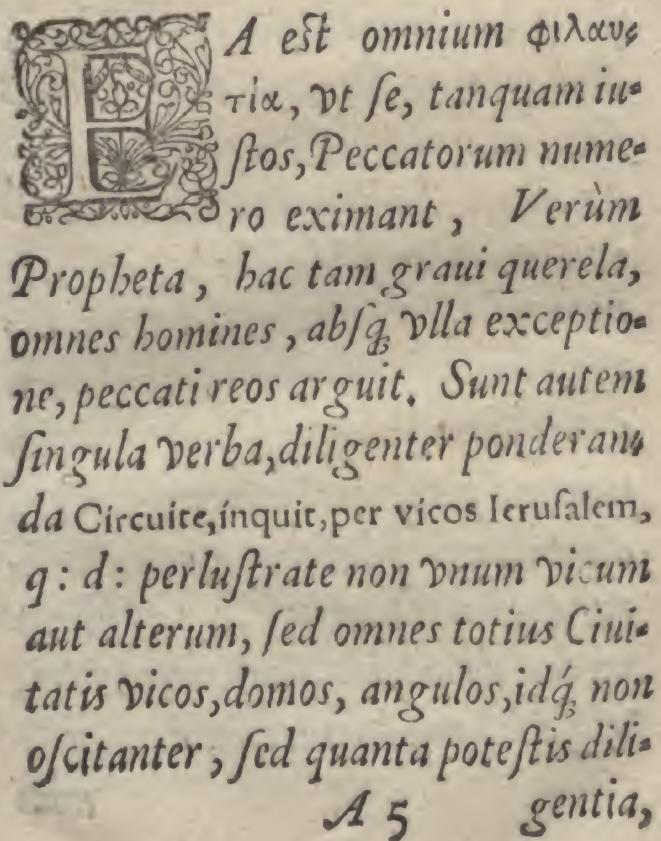 EA est omnium φιλαυ-
τία, vt se, tanquam iu-
stos, Peccatorum nume-
ro eximant, Verùm
Propheta, hac tam graui querela,
omnes homines, absq; vlla exceptio-
ne, peccati reos arguit. Sunt autem
singula verba, diligenter ponderan-
da Circuite, inquit, per vicos Ierusalem,
q: d: perlustrate non vnum vicum
aut alterum, sed omnes totius Ciui-
tatis vicos, domos, angulos, idq́; non
oscitanter, sed quanta potestis dili-
A 5 gentia,